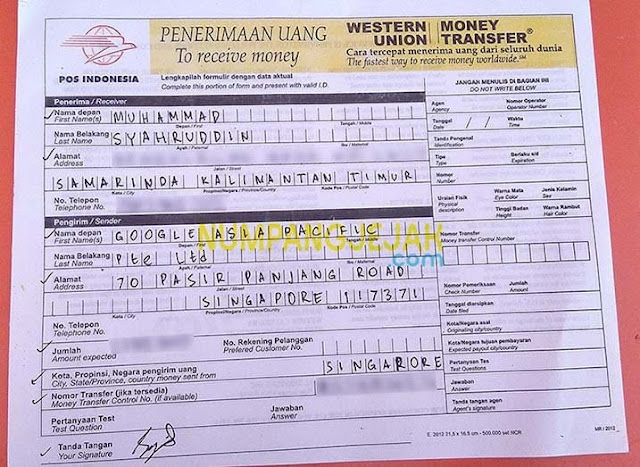 PENERIMAAN UANG
To receive money
WESTERN UNION MONEY TRANSFER®
Cara tercepat menerima uang dari seluruh dunia
The fastest way to receive money worldwide.
POS INDONESIA
Lengkapilah formulir dengan data aktual
Complete this portion of form and present with valid I.D.
JANGAN MENULIS DI BAGIAN INI
DO NOT WRITE BELOW
Penerima / Receiver
Nama depan
First Name(s)
MUHAMMAD
Depan / First
Tengah / Middle
Nama Belakang
Last Name
SYAHRUDDIN
Ayah / Paternal
Ibu / Maternal
Alamat
Address
Jalan / Street
SAMARINDA KALIMANTAN TIMUR
Kota / City
Propinsi/Negara / Province/Country
Kode Pos / Postal Code
No. Telepon
Telephone No.
Pengirim / Sender
Nama depan
First Name(s)
GOOGLE ASIA PACIFIC
Depan / First
Tengah / Middle
NUMPANGJEJAK
.com
Nama Belakang
Last Name
Pte Ltd
Ayah / Paternal
Ibu / Maternal
Alamat
Address
70 PASIR PANJANG ROAD
Jalan / Street
SINGAPORE 117371
Kota / City
Propinsi/Negara / Province/Country
Kode Pos / Postal Code
No. Telepon
Telephone No.
Jumlah
Amount expected
No. Rekening Pelanggan
Preferred Customer No.
Kota, Propinsi, Negara pengirim uang
City, State/Province, country money sent from
SINGARORE
Nomor Transfer (jika tersedia)
Money Transfer Control No. (if available)
Pertanyaan Test
Test Question
Jawaban
Answer
Tanda Tangan
Your Signature
Agen
Agency
Nomor Operator
Operator Number
Tanggal
Date
/ /
Waktu
Time
Tanda Pengenal
Identification
Tipe
Type
Berlaku s/d
Expiration
Nomor
Number
Uraian Fisik
Physical description
Warna Mata
Eye Color
Jenis Kelamin
Sex
Tinggi Badan
Height
Warna Rambut
Hair Color
Nomor Transfer
Money Transfer Control Number
Nomor Pemeriksaan
Check Number
Jumlah
Amount
Tanggal diarsipkan
Date filed
Kota/Negara asal
Originating city/country
Kota/Negara tujuan pembayaran
Expected payout city/country
Pertanyaan Tes
Test Questions
Jawaban
Answer
Tanda tangan agen
Agent's signature
E. 2012 21,5 x 16.5 cm - 500.000 set NCR
MR / 2012